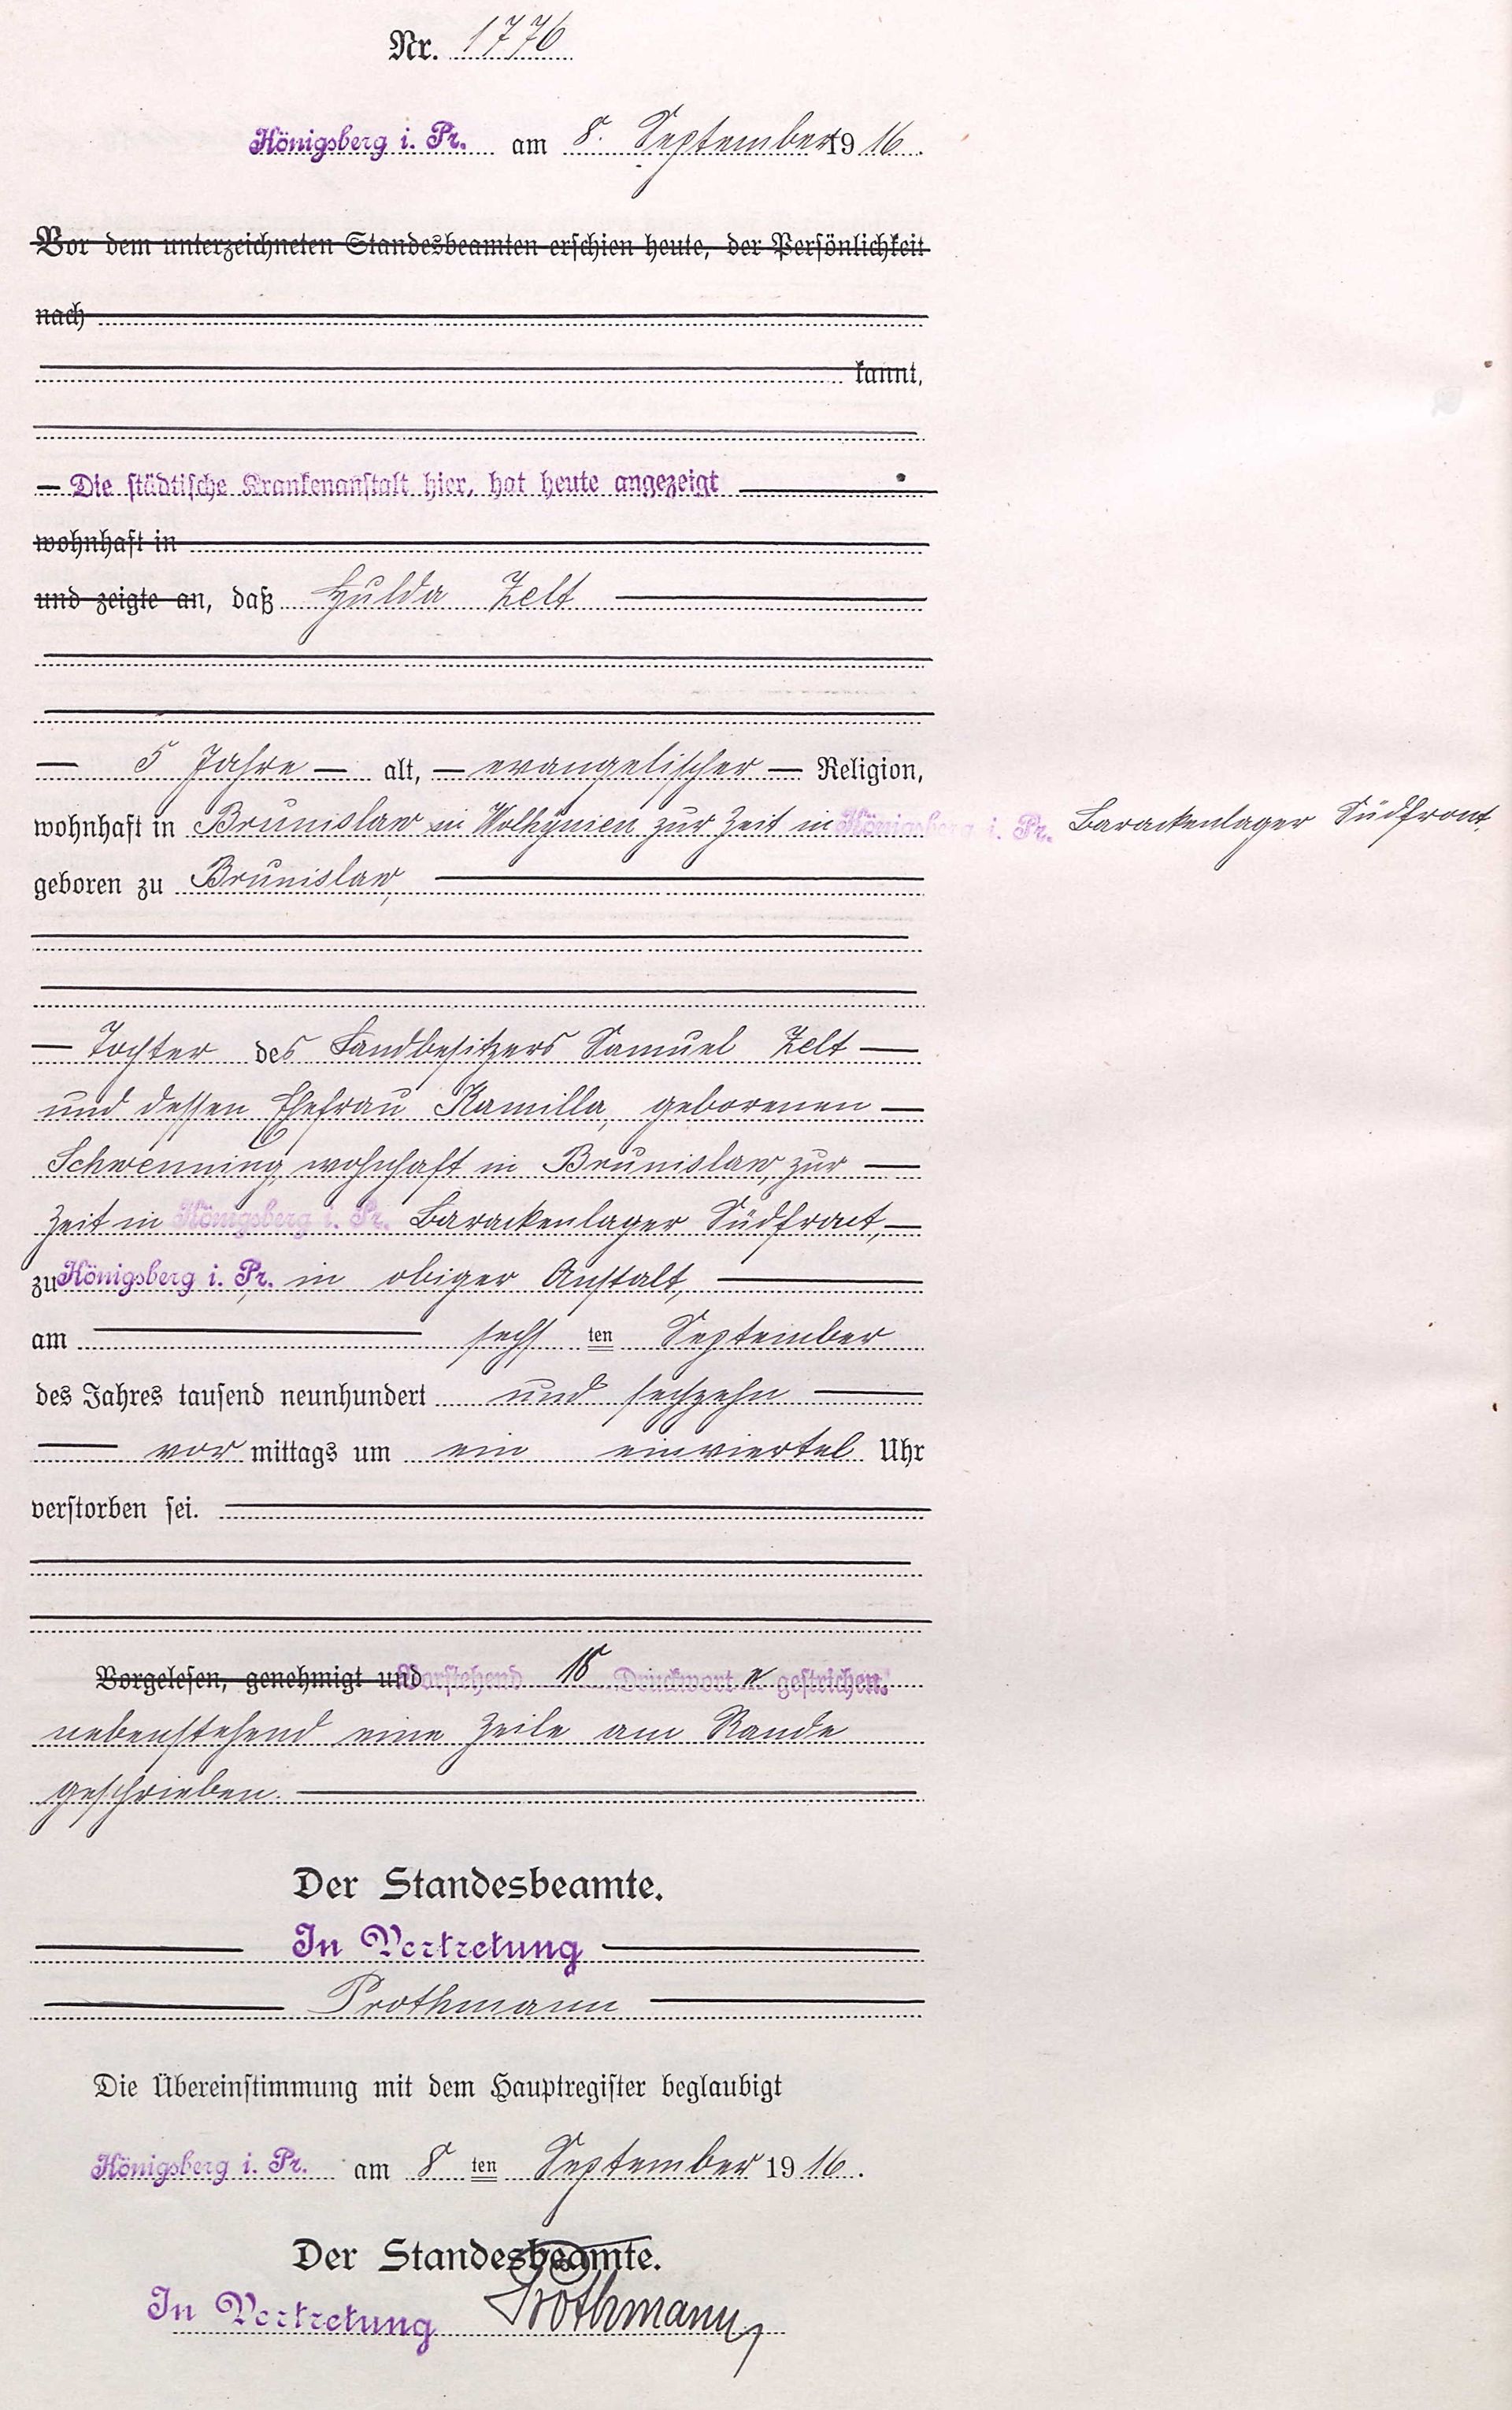 Nr. 1776
Königsberg i. Pr. am 8. September 1916.
Vor dem unterzeichneten Standesbeamten erschien heute, der Persönlichkeit
nach
kannt,
— Die städtische Krankenanstalt hier, hat heute angezeigt —
wohnhaft in
und zeigte an, daß Hulda Zelt —
— 5 Jahre — alt, — evangelischer — Religion,
wohnhaft in Brunislaw in Wolhynien zur Zeit in Königsberg i. Pr. Barackenlager Südfront,
geboren zu Brunislaw, —
— Tochter des Landbesitzers Samuel Zelt —
und dessen Ehefrau Kamilla, geborenen —
Schwenning, wohnhaft in Brunislaw, zur —
Zeit in Königsberg i. Pr. Barackenlager Südfront, —
zu Königsberg i. Pr. in obiger Anstalt, —
am — sechsten September
des Jahres tausend neunhundert und sechzehn —
— vormittags um ein einviertel Uhr
verstorben sei. —
Vorgelesen, genehmigt und Vorstehend 15 Druckworte gestrichen.
nebenstehend eine Zeile am Rande
geschrieben. —
Der Standesbeamte.
— In Vertretung —
— Prothmann —
Die Übereinstimmung mit dem Hauptregister beglaubigt
Königsberg i. Pr. am 8ten September 1916.
Der Standesbeamte.
In Vertretung Prothmann